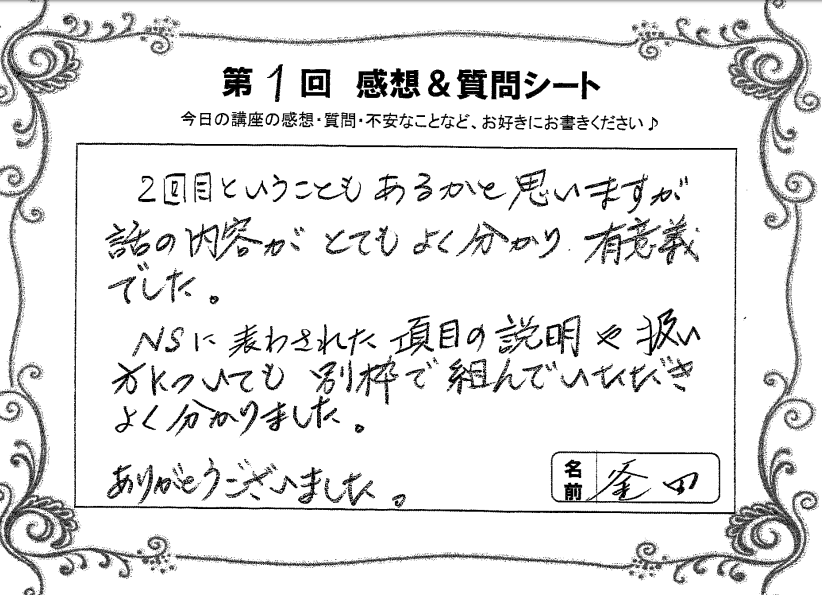 第1回 感想＆質問シート
今日の講座の感想・質問・不安なことなど、お好きにお書きください♪
2回目ということもあるかと思いますが
話の内容がとてもよく分かり、有意義
でした。
NSに表わされた項目の説明や扱い
方についても別枠で組んでいただき
よく分かりました。
ありがとうございました。
名前